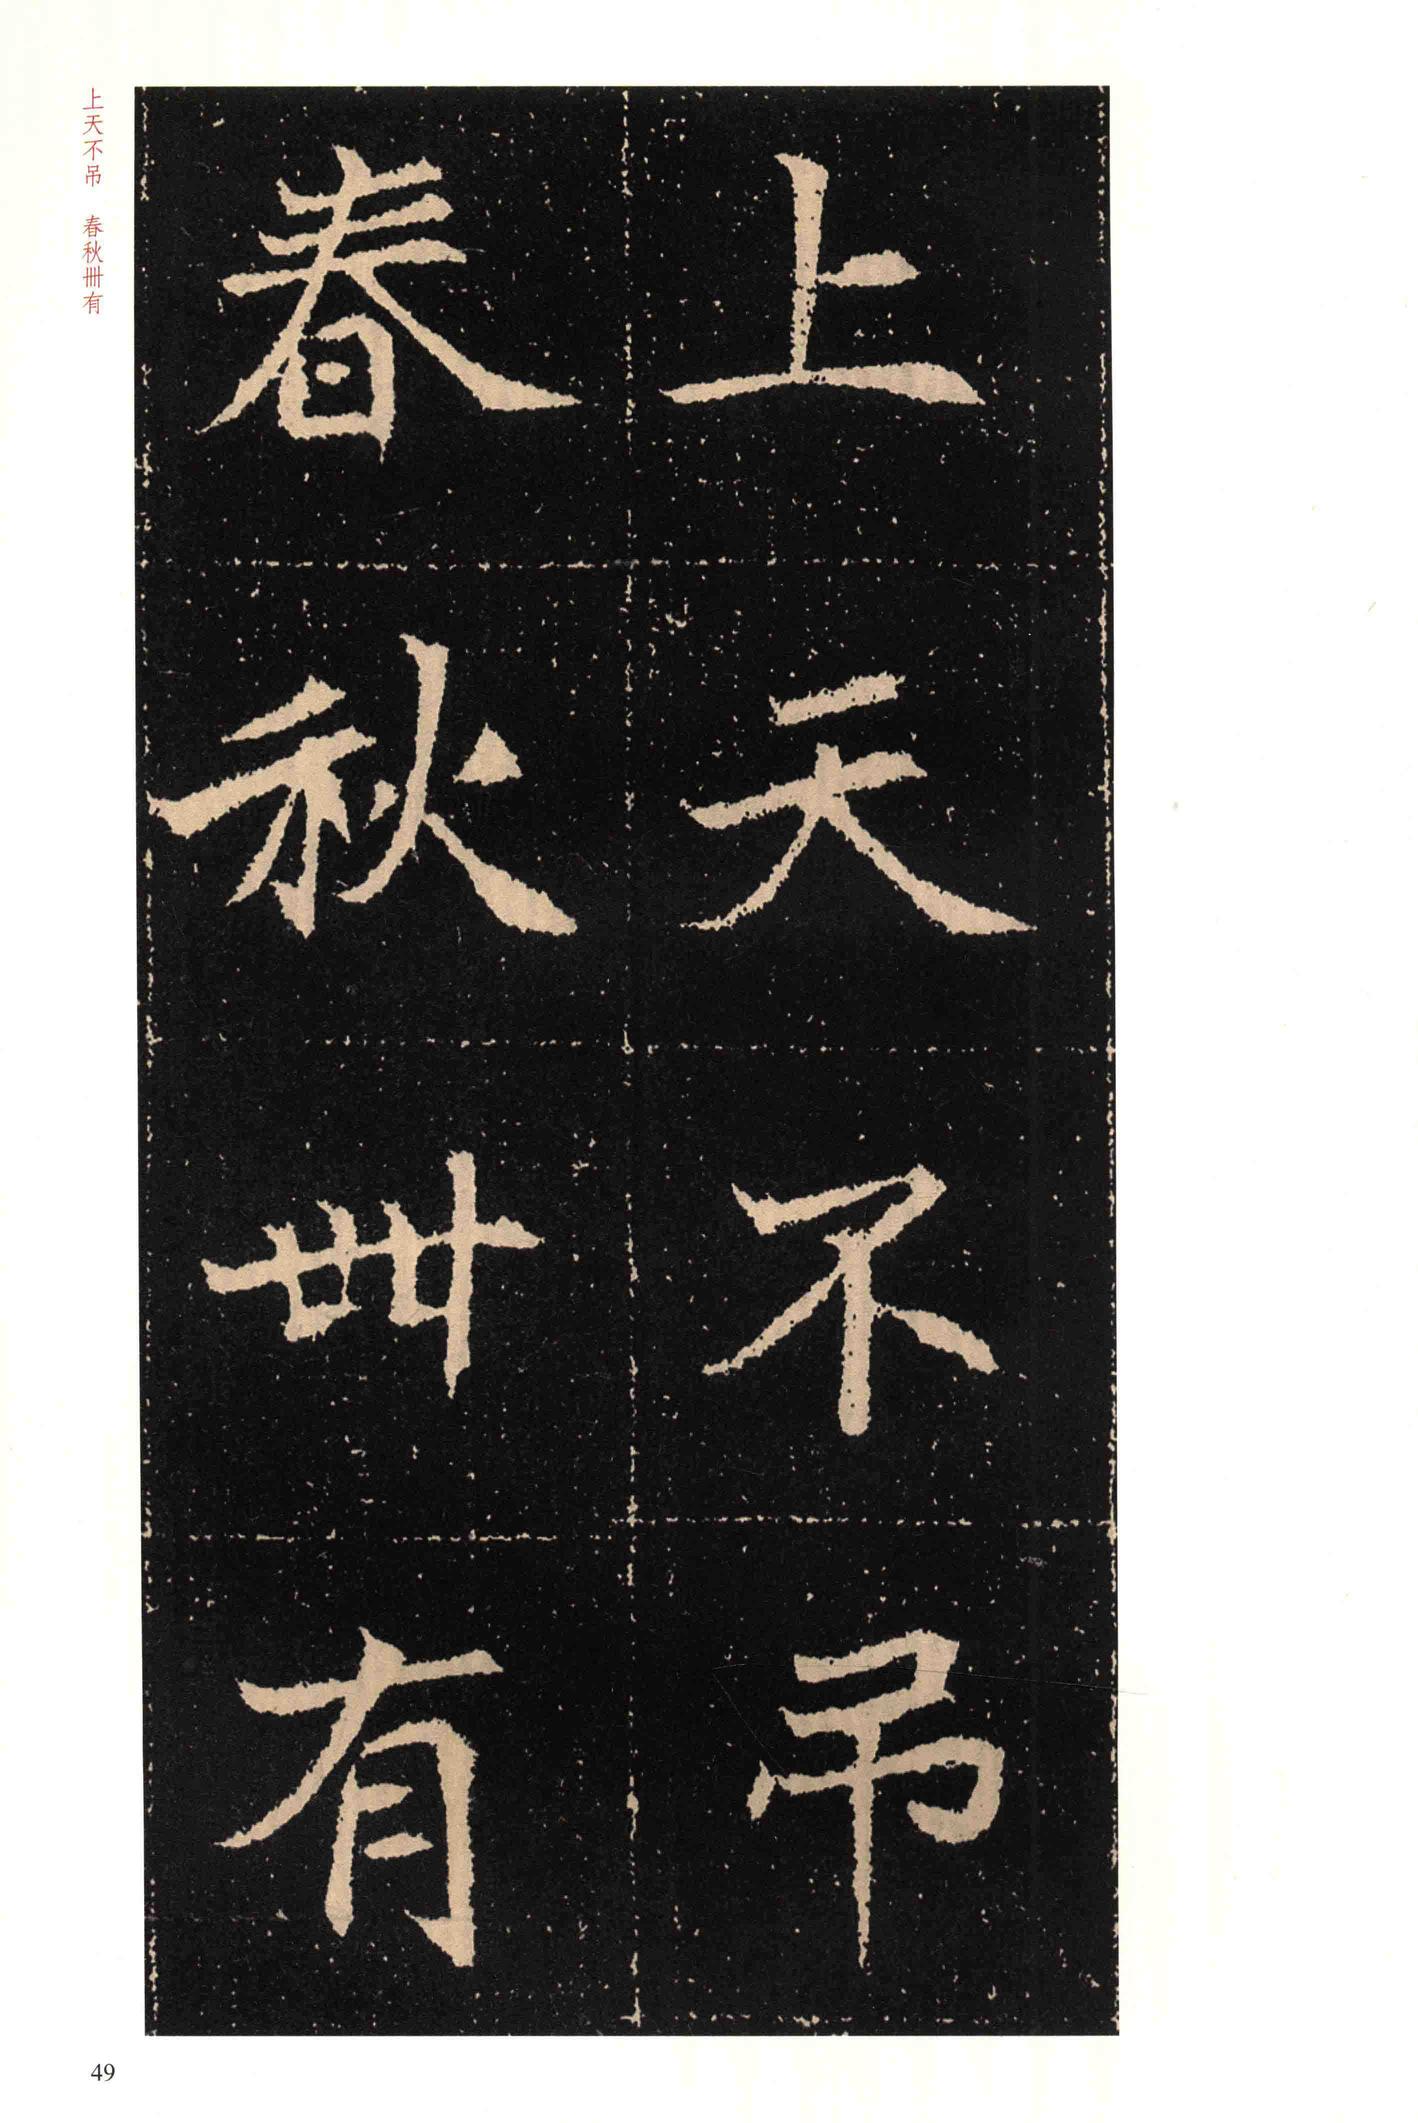 上天不吊
春秋卌有
上天不吊 春秋卌有
49